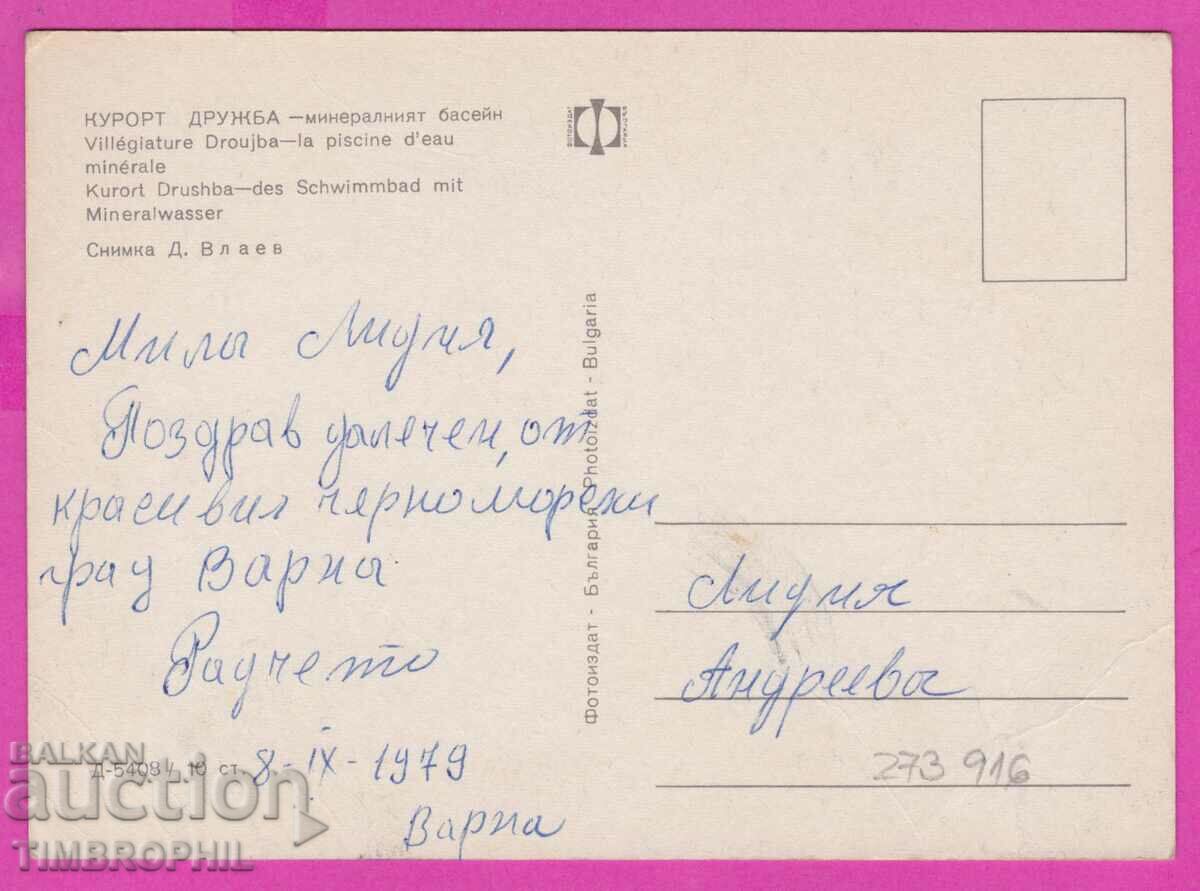 КУРОРТ ДРУЖБА —минералният басейн
Villégiature Droujba—la piscine d'eau
minérale
Kurort Drushba—des Schwimmbad mit
Mineralwasser
Снимка Д. Влаев
ФОТОИЗДАТ
Мила Лидия,
Поздрав далечен, от
красивия черноморски
град Варна
Радчето
8-IX-1979
Варна
Д-5408 10 ст.
Фотоиздат - България Photoizdat - Bulgaria
Лидия
Андреева
273 916
BALKAN
auction
TIMBROPHIL